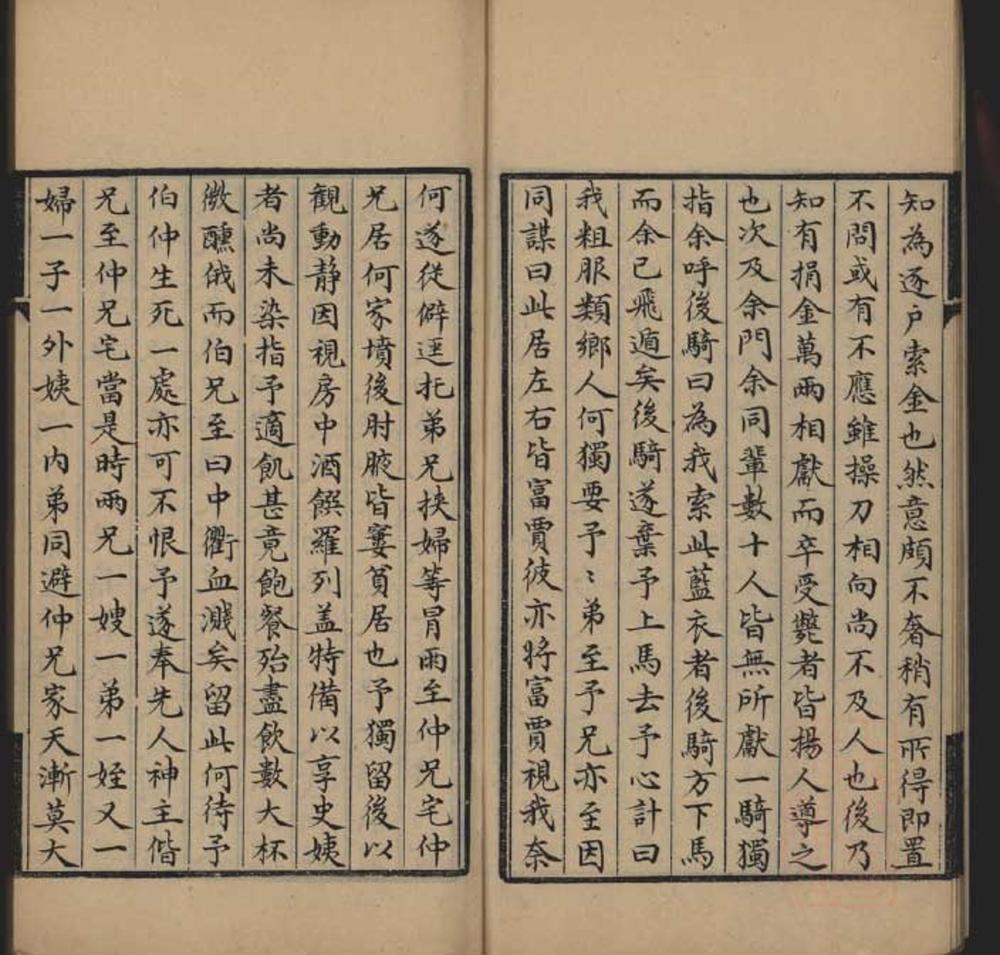 知為逐户索金也然意頗不奢稍有所得即置
不問或有不應雖操刀相向尚不及人也後乃
知有捐金萬兩相獻而卒受斃者皆揚人導之
也次及余門余同輩數十人皆無所獻一騎獨
指余呼後騎曰為我索此藍衣者後騎方下馬
而余已飛遁矣後騎遂棄予上馬去予心計曰
我粗服類鄉人何獨要予〻弟至予兄亦至因
同謀曰此居左右皆富賈彼亦將富賈視我奈
何遂從僻逕托弟兄挾婦等冒雨至仲兄宅仲
兄居何家墳後肘腋皆窶貧居也予獨留後以
觀動静因視房中酒饌羅列盖特備以享史姨
者尚未染指予適飢甚竟飽餐殆盡飲數大杯
微醺俄而伯兄至曰中衢血濺矣留此何待予
伯仲生死一處亦可不恨予遂奉先人神主偕
兄至仲兄宅當是時兩兄一嫂一弟一姪又一
婦一子一外姨一内弟同避仲兄家天漸莫大